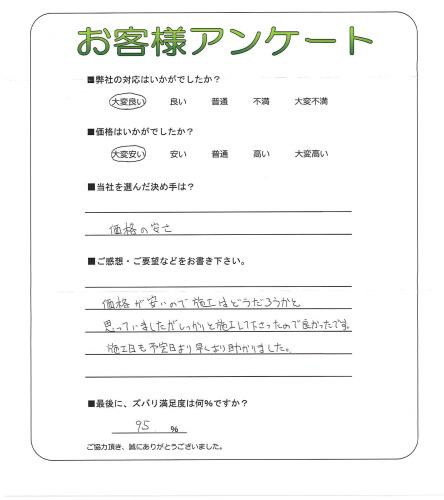 お客様アンケート
■弊社の対応はいかがでしたか？
大変良い 良い 普通 不満 大変不満
■価格はいかがでしたか？
大変安い 安い 普通 高い 大変高い
■当社を選んだ決め手は？
価格の安さ
■ご感想・ご要望などをお書き下さい。
価格が安いので施工はどうだろうかと
思っていましたがしっかりと施工して下さったので良かったです。
施工日も予定日より早くなり助かりました。
■最後に、ズバリ満足度は何%ですか？
95 %
ご協力頂き、誠にありがとうございました。